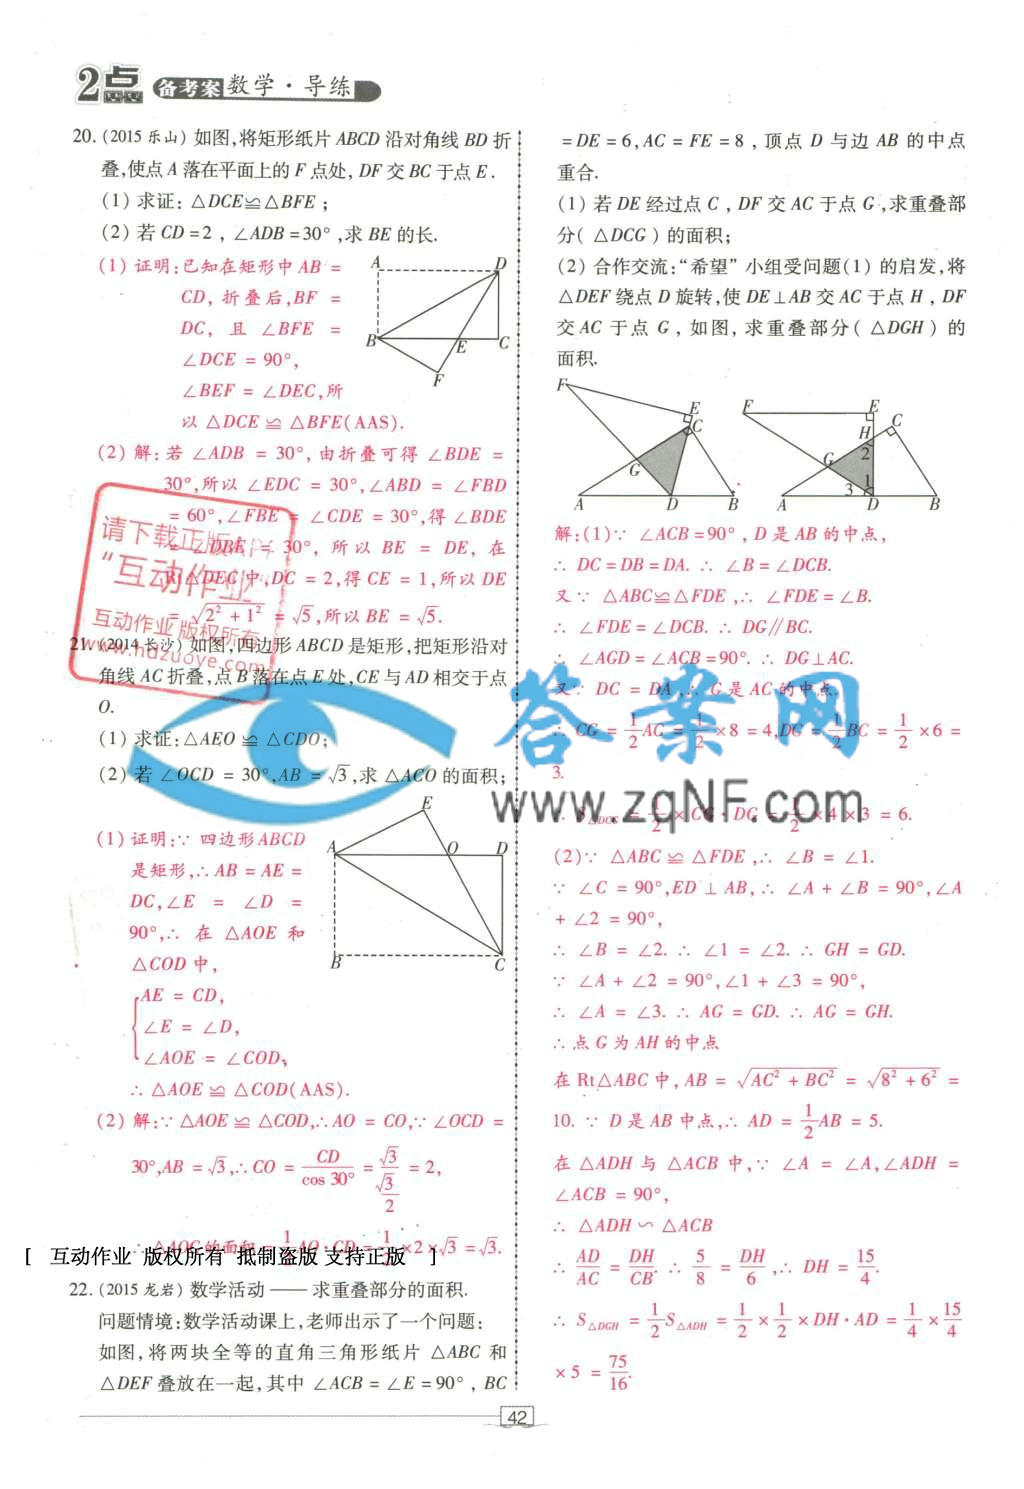 2点
备考案 数学·导练
20. (2015 乐山) 如图,将矩形纸片 ABCD 沿对角线 BD 折
叠,使点 A 落在平面上的 F 点处, DF 交 BC 于点 E .
(1) 求证: △DCE≌△BFE ;
(2) 若 CD=2 , ∠ADB=30° ,求 BE 的长.
(1) 证明:已知在矩形中 AB =
CD, 折叠后,BF =
DC, 且 ∠BFE =
∠DCE = 90°,
∠BEF = ∠DEC,所
以 △DCE ≌ △BFE(AAS).
A D
B E C
F
(2) 解:若 ∠ADB = 30°, 由折叠可得 ∠BDE =
30°,所以 ∠EDC = 30°,∠ABD = ∠FBD
= 60°,∠FBE = ∠CDE = 30°,得 ∠BDE
= ∠DBE = 30°, 所以 BE = DE, 在
Rt△DEC 中,DC = 2,得 CE = 1,所以 DE
= √(2² + 1²) = √5,所以 BE = √5.
请下载正版软件
“互动作业”
互动作业 版权所有
www.hdzuoye.com
21. (2014 长沙) 如图,四边形 ABCD 是矩形,把矩形沿对
角线 AC 折叠,点 B 落在点 E 处,CE 与 AD 相交于点
O.
(1) 求证:△AEO ≌ △CDO;
(2) 若 ∠OCD = 30°,AB = √3,求 △ACO 的面积;
(1) 证明:∵ 四边形 ABCD
是矩形,∴ AB = AE =
DC,∠E = ∠D =
90°,∴ 在 △AOE 和
△COD 中,
{AE = CD,
∠E = ∠D,
∠AOE = ∠COD,
∴ △AOE ≌ △COD(AAS).
E
A O D
B C
(2) 解:∵ △AOE ≌ △COD,∴ AO = CO,∵ ∠OCD =
30°,AB = √3,∴ CO = CD/cos 30° = √3/(√3/2) = 2,
∴ △AOC 的面积 = 1/2 AO · CD = 1/2 × 2 × √3 = √3.
[ 互动作业 版权所有 抵制盗版 支持正版 ]
22. (2015 龙岩) 数学活动 —— 求重叠部分的面积.
问题情境:数学活动课上,老师出示了一个问题:
如图,将两块全等的直角三角形纸片 △ABC 和
△DEF 叠放在一起,其中 ∠ACB = ∠E = 90° , BC
= DE = 6, AC = FE = 8 , 顶点 D 与边 AB 的中点
重合.
(1) 若 DE 经过点 C , DF 交 AC 于点 G ,求重叠部
分( △DCG ) 的面积;
(2) 合作交流:“希望”小组受问题(1) 的启发,将
△DEF 绕点 D 旋转,使 DE⊥AB 交 AC 于点 H , DF
交 AC 于点 G , 如图, 求重叠部分( △DGH ) 的
面积.
F E C G A D B
F E C H 2 G 1 3 A D B
解:(1)∵ ∠ACB=90° , D 是 AB 的中点,
∴ DC = DB = DA. ∴ ∠B = ∠DCB.
又∵ △ABC≌△FDE ,∴ ∠FDE = ∠B.
∴ ∠FDE = ∠DCB. ∴ DG∥BC.
∴ ∠AGD = ∠ACB =90°. ∴ DG⊥AC.
又∵ DC = DA ,∴ G 是 AC 的中点.
∴ CG = 1/2 AC = 1/2 ×8 = 4,DG = 1/2 BC = 1/2 ×6 =
3.
∴ S△DCG = 1/2 × CG · DG = 1/2 × 4 × 3 = 6.
答案网
www.zqNF.com
(2)∵ △ABC ≌ △FDE ,∴ ∠B = ∠1.
∵ ∠C = 90°,ED ⊥ AB,∴ ∠A + ∠B = 90°,∠A
+ ∠2 = 90°,
∴ ∠B = ∠2. ∴ ∠1 = ∠2. ∴ GH = GD.
∵ ∠A + ∠2 = 90°,∠1 + ∠3 = 90°,
∴ ∠A = ∠3. ∴ AG = GD. ∴ AG = GH.
∴ 点 G 为 AH 的中点
在 Rt△ABC 中, AB = √(AC² + BC²) = √(8² + 6²) =
10. ∵ D 是 AB 中点,∴ AD = 1/2 AB = 5.
在 △ADH 与 △ACB 中,∵ ∠A = ∠A,∠ADH =
∠ACB = 90°,
∴ △ADH ∽ △ACB
∴ AD/AC = DH/CB. ∴ 5/8 = DH/6 ,∴ DH = 15/4.
∴ S△DGH = 1/2 S△ADH = 1/2 × 1/2 × DH · AD = 1/4 × 15/4
× 5 = 75/16.
42